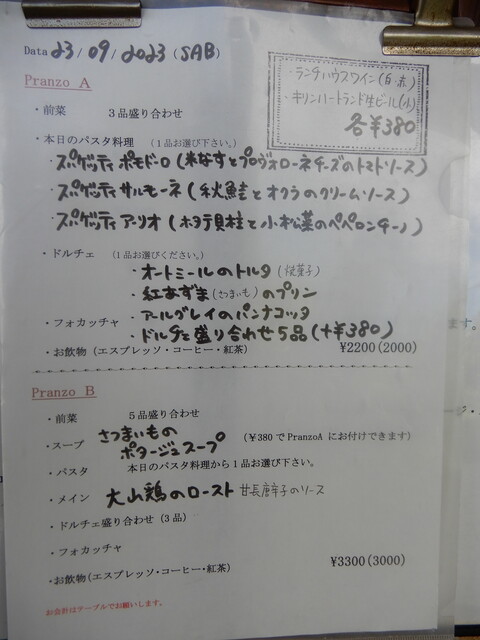 Data 23/09/2023 (SAB)
・ランチハウスワイン(白・赤)
・キリンハートランド生ビール(小)
各¥380
Pranzo A
・前菜 3品盛り合わせ
・本日のパスタ料理 (1品お選び下さい。)
・スパゲッティ ポモドーロ (米なすとプロヴォローネチーズのトマトソース)
・スパゲッティ サルモーネ (秋鮭とオクラのクリームソース)
・スパゲッティ アーリオ (ホタテ貝柱と小松菜のペペロンチーノ)
・ドルチェ (1品お選びください。)
・オートミールのトルタ (焼菓子)
・紅あずま(さつまいも)のプリン
・アールグレイのパンナコッタ
・フォカッチャ
・ドルチェ盛り合わせ5品(+¥380)
・お飲物(エスプレッソ・コーヒー・紅茶) ¥2200(2000)
Pranzo B
・前菜 5品盛り合わせ
・スープ さつまいもの
ポタージュスープ (¥380でPranzoAにお付けできます)
・パスタ 本日のパスタ料理から1品お選び下さい。
・メイン 大山鶏のロースト 甘長唐辛子のソース
・ドルチェ盛り合わせ(3品)
・フォカッチャ
・お飲物(エスプレッソ・コーヒー・紅茶) ¥3300(3000)
お会計はテーブルでお願いします。